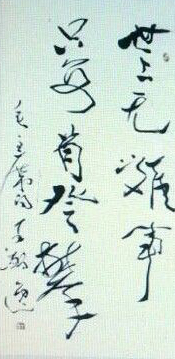 世上无難事
只要肯登攀
毛主席词